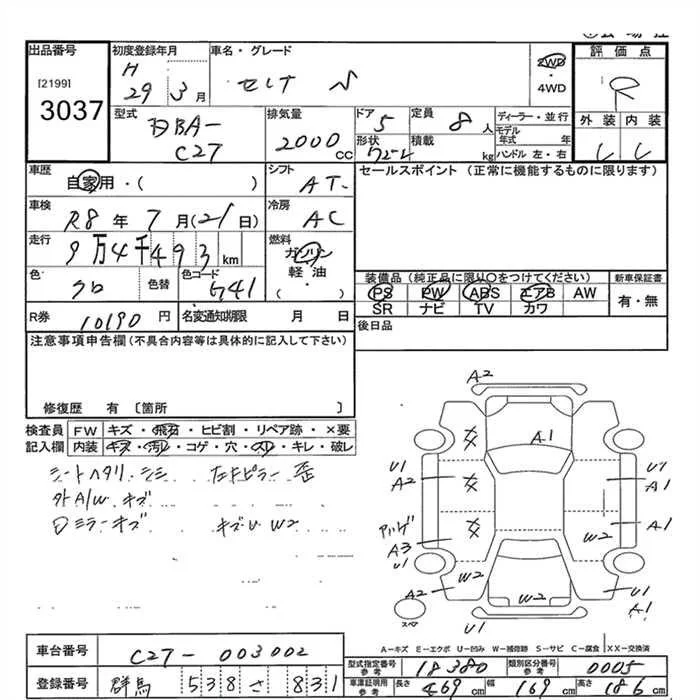 出品番号 初度登録年月 車名・グレード 評価点
[2199] H セレナ 2WD R
3037 29 3月 ・4WD 外装 内装
型式 排気量 ドア 定員 ディーラー・並行
DBA- 2000 CC 5 8人 モデル年式 年
C27 形状 積載 kg ハンドル 左・右
車歴 シフト セールスポイント (正常に機能するものに限ります)
自家用・( ) AT
車検 冷房
R8年7月(21日) AC
走行 燃料
9万4千493km ガソリン
色 色替 色コード 軽油
クロ G41 ( )
装備品(純正品に限り○をつけてください) 新車保証書
PS PW ABS エアB AW 有・無
SR ナビ TV カワ
R券 10190円 名変通知期限 月 日 後日品
注意事項申告欄(不具合内容等は具体的に記入して下さい)
修復歴 有 〔箇所 〕
検査員 FW キズ・飛石・ヒビ割・リペア跡・×要
記入欄 内装 キズ・汚レ・コゲ・穴・スリ・キレ・破レ
シートヘタリ シミ
外A/W キズ
ミラーキズ キズU W2
A2
A1
U1 U1
A2 A1
A1
W2
A3
U1
W2 W2 U1
A1
スペア
U1
A-キズ E-エクボ U-凹み W-補修跡 S-サビ C-腐食 XX-交換済
車台番号 C27-003002
型式指定番号 参考 18380 類別区分番号 参考 0005
登録番号 群馬 538 さ 831
車庫証明用 参考 長さ 469cm 幅 169cm 高さ 186cm